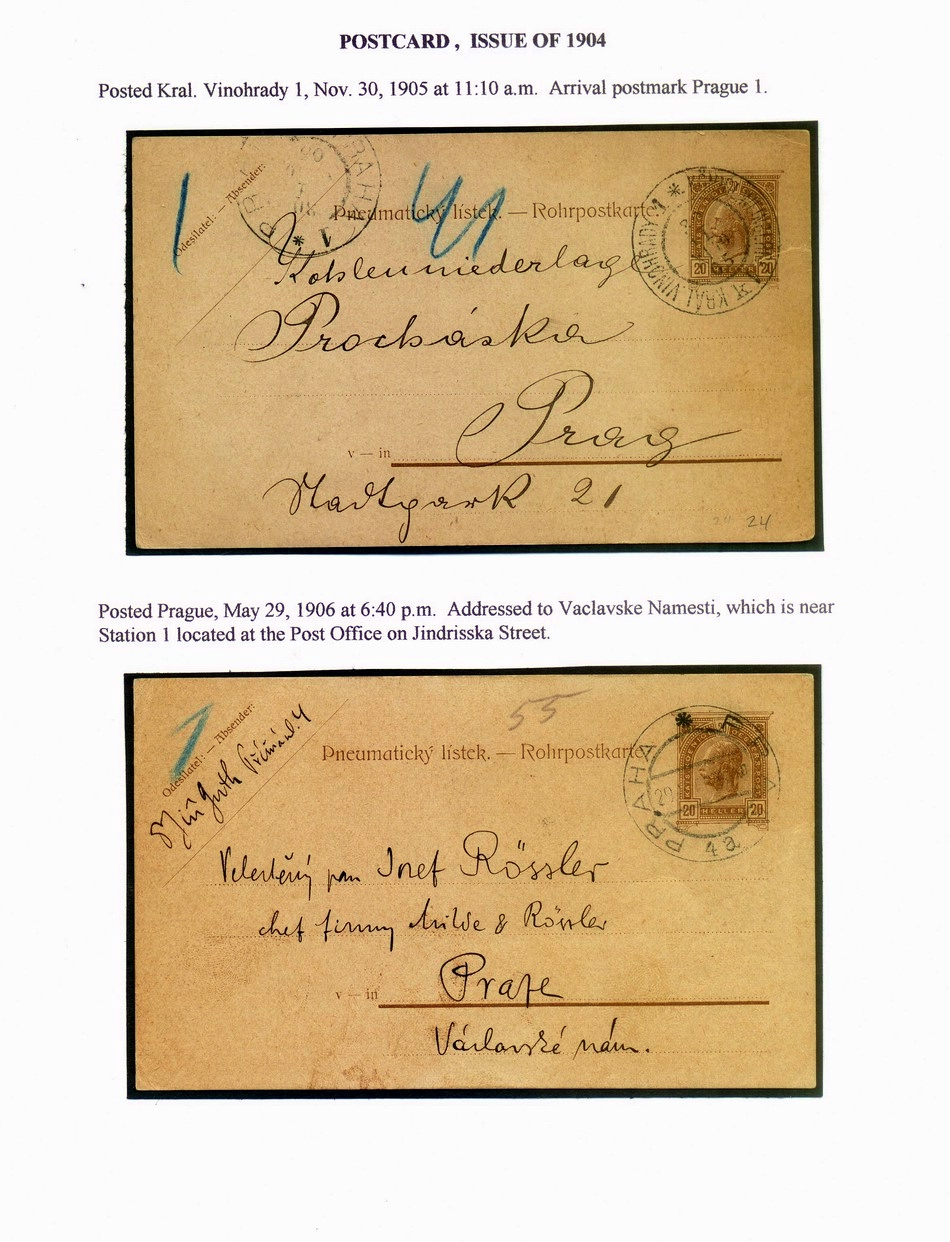 POSTCARD , ISSUE OF 1904
Posted Kral. Vinohrady 1, Nov. 30, 1905 at 11:10 a.m. Arrival postmark Prague 1.
1
41
Odesílatel: — Absender:
PRAHA 1
Pneumatický lístek. — Rohrpostkarte.
KRÁL. VINOHRADY 1
20 HELLER 20
Kohlenniederlage
Procháska
v — in Prag
Stadtpark 21
24
Posted Prague, May 29, 1906 at 6:40 p.m. Addressed to Vaclavske Namesti, which is near
Station 1 located at the Post Office on Jindrisska Street.
1
55
Odesílatel: — Absender:
Jiří Guth
Pneumatický lístek. — Rohrpostkarte
PRAHA 4a
20 HELLER 20
pan Josef Rössler
chef firmy Milde & Rössler
v — in Praze
Václavské nám.